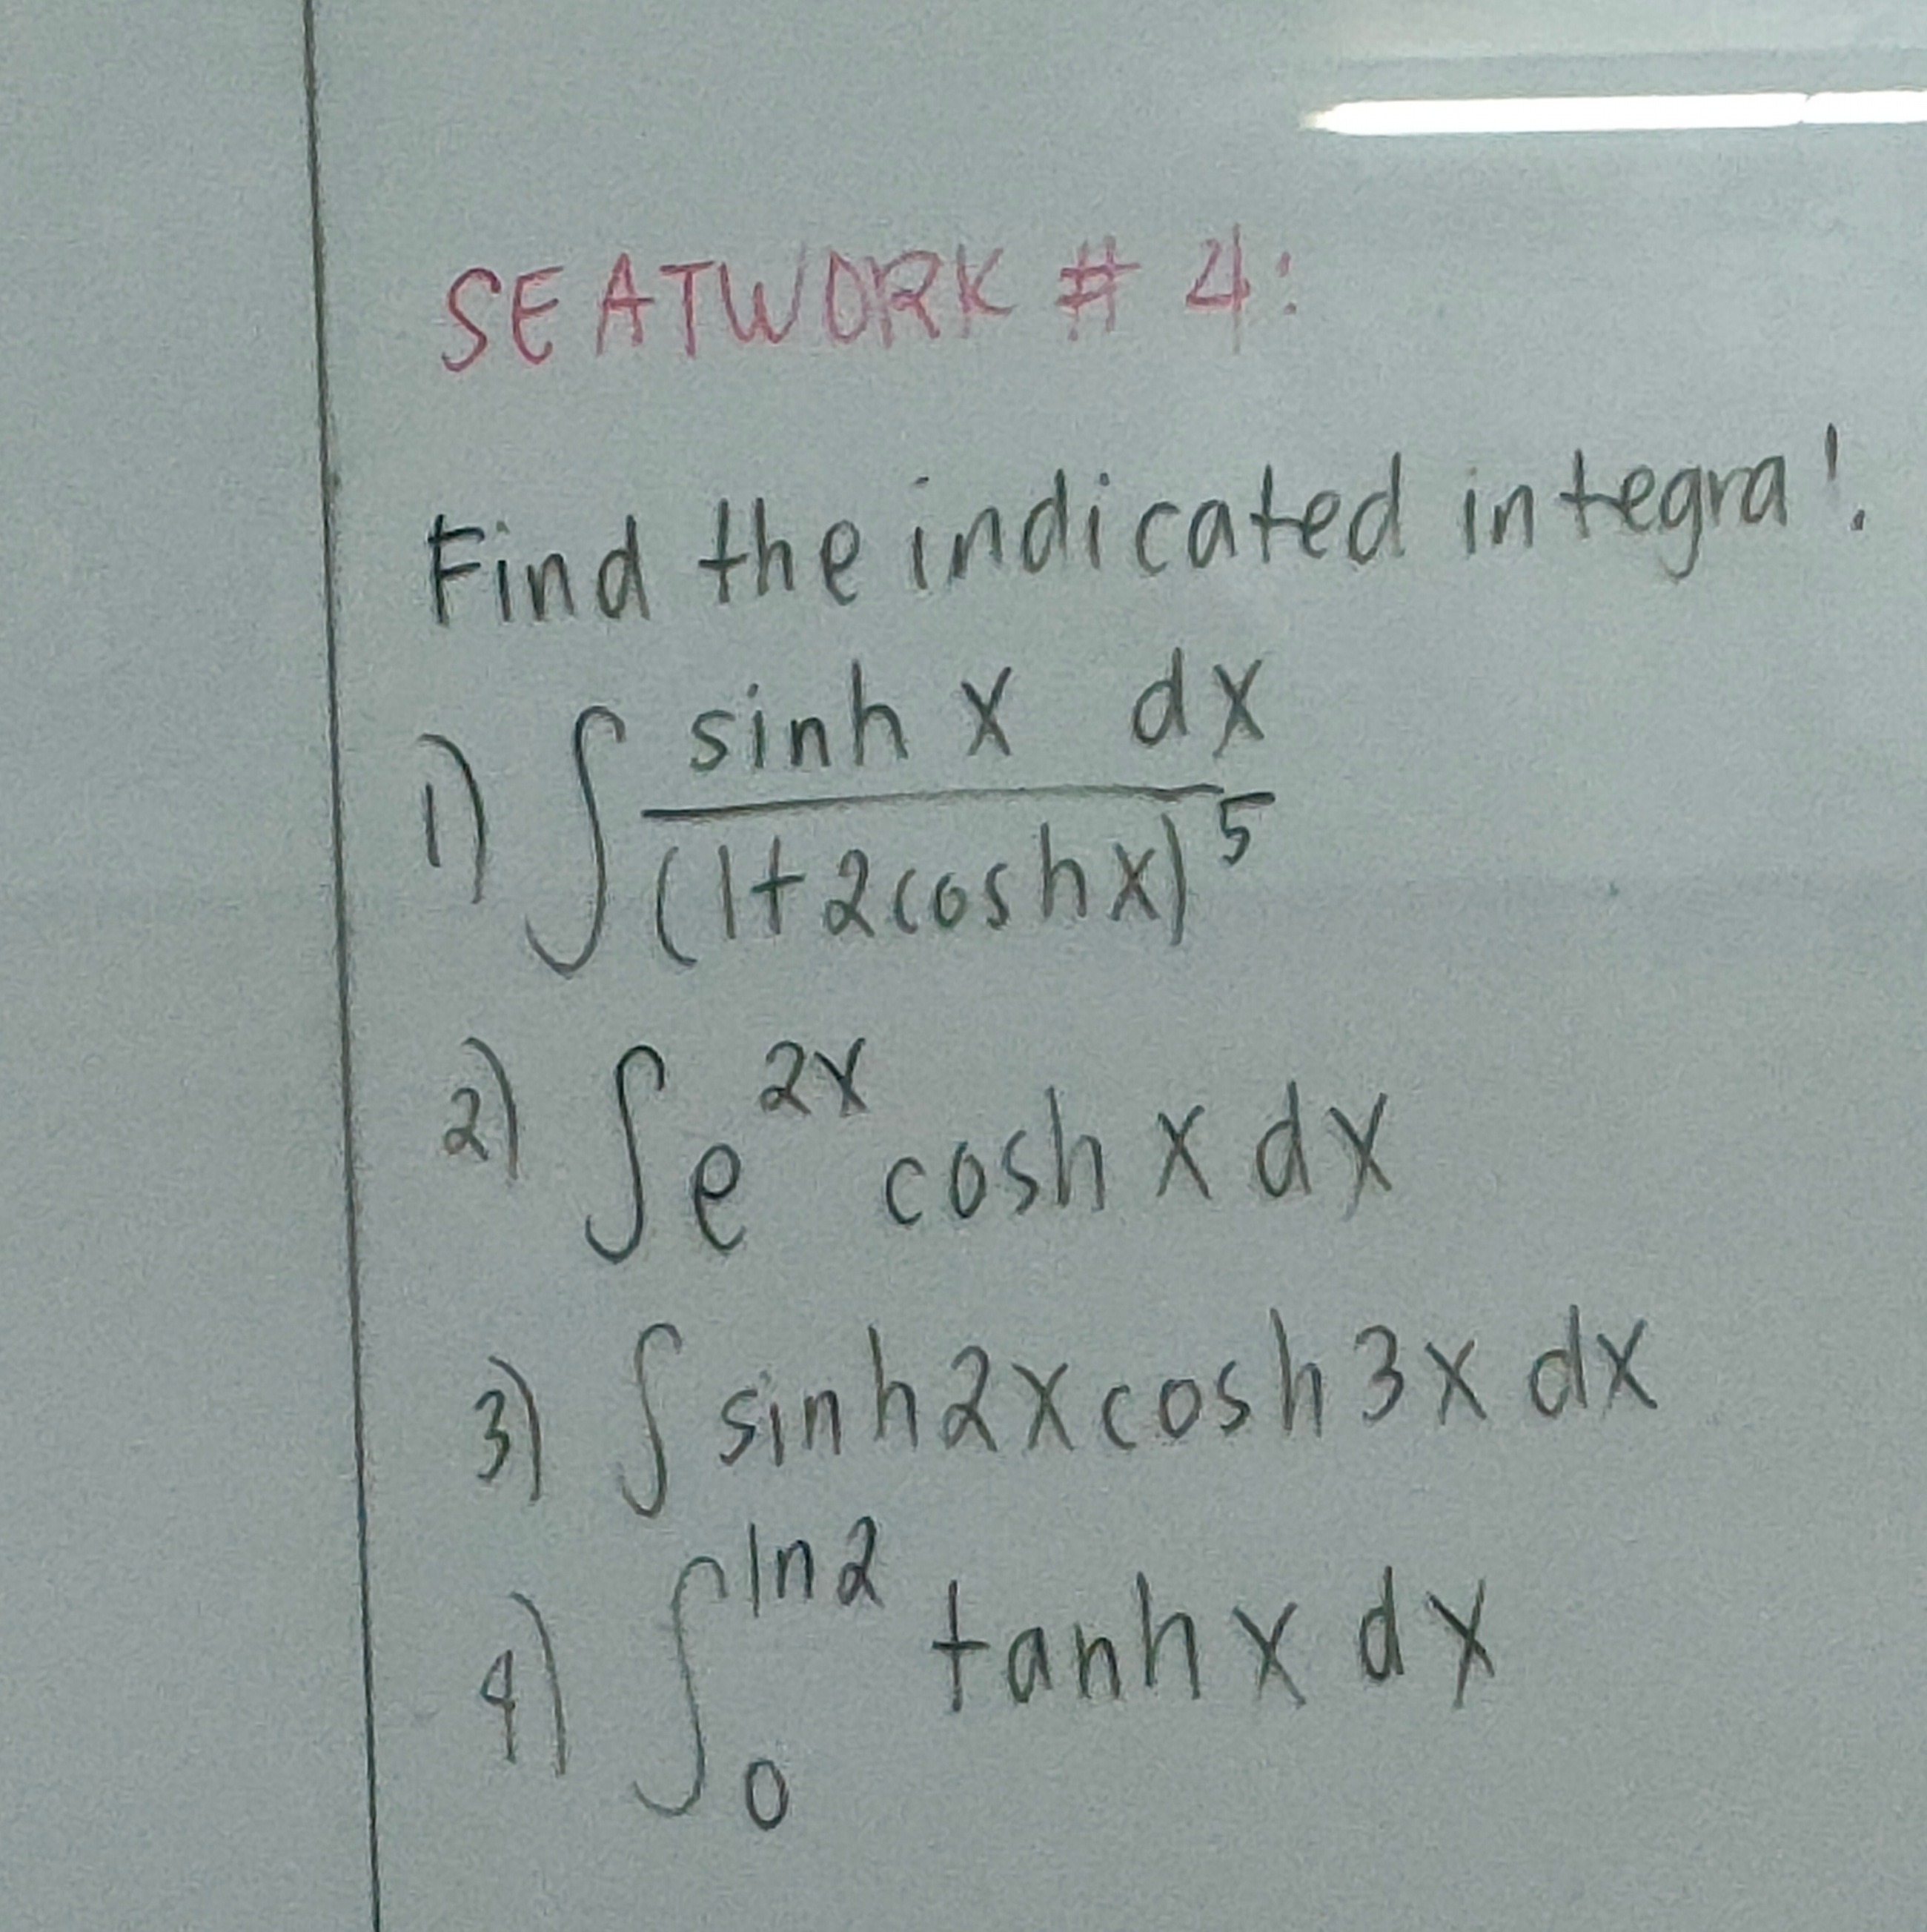 SEATWORK # 4:
Find the indicated integral.
1) ∫ sinh x dx / (1+2coshx)^5
2) ∫ e^2x cosh x dx
3) ∫ sinh2x cosh3x dx
4) ∫_0^ln2 tanh x dx